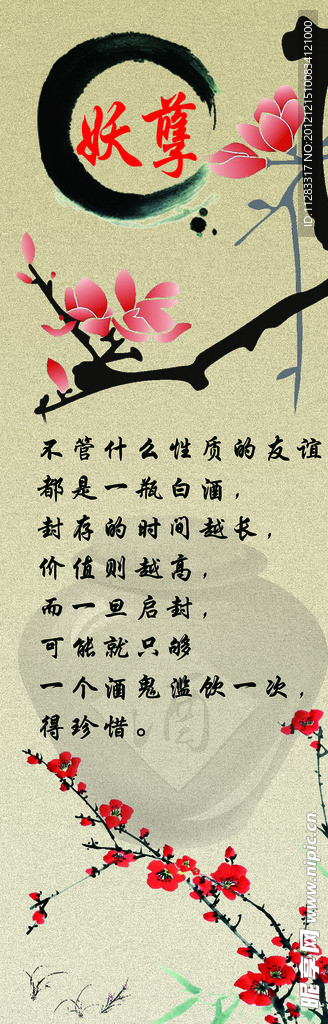 妖孽
不管什么性质的友谊
都是一瓶白酒，
封存的时间越长，
价值则越高，
而一旦启封，
可能就只够
一个酒鬼滥饮一次，
得珍惜。
酒
ID:11283317 NO:20121215100834121000
昵享网 www.nipic.cn